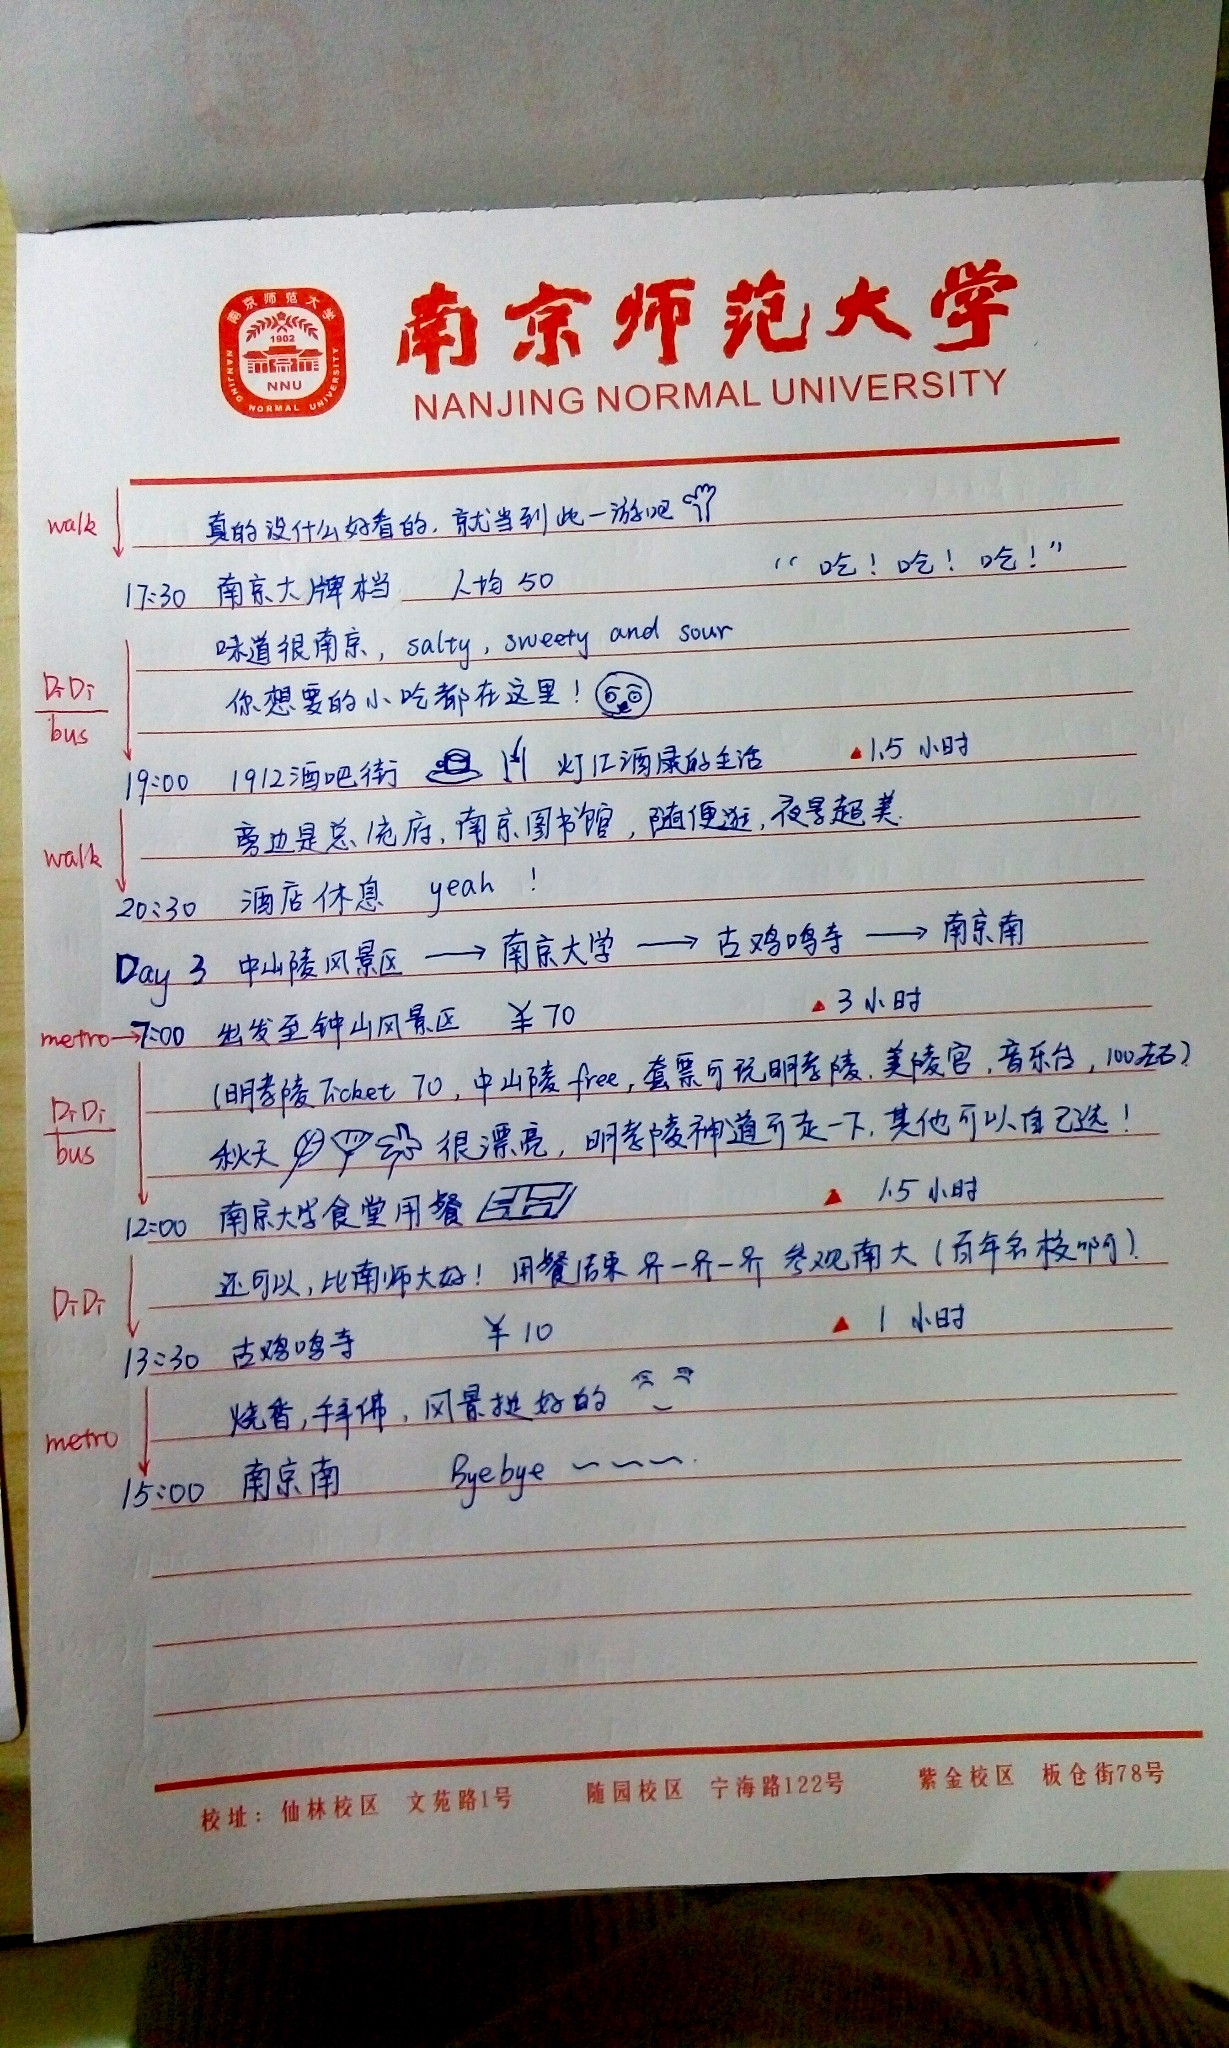 南京师范大学
1902
NNU
NANJING NORMAL UNIVERSITY
南京师范大学
NANJING NORMAL UNIVERSITY
walk 真的没什么好看的，就当到此一游吧
17:30 南京大牌档 人均50 “吃！吃！吃！”
味道很南京，salty，sweety and sour
DiDi
bus
你想要的小吃都在这里！
19:00 1912酒吧街 灯红酒绿的生活 ▲1.5小时
walk 旁边是总统府，南京图书馆，随便逛，夜景超美.
20:30 酒店休息 yeah！
Day 3 中山陵风景区 → 南京大学 → 古鸡鸣寺 → 南京南
metro→7:00 出发至钟山风景区 ¥70 ▲3小时
(明孝陵Ticket 70，中山陵free，套票可玩明孝陵、美陵宫，音乐台，100左右)
DiDi
bus
秋天 很漂亮，明孝陵神道可走一下，其他可以自己选！
12:00 南京大学食堂用餐 ▲1.5小时
DiDi 还可以，比南师大好！用餐结束 参观南大（百年名校啊）.
13:30 古鸡鸣寺 ¥10 ▲1小时
metro 烧香，拜佛，风景挺好的
15:00 南京南 Byebye ~~~.
校址：仙林校区 文苑路1号 随园校区 宁海路122号 紫金校区 板仓街78号